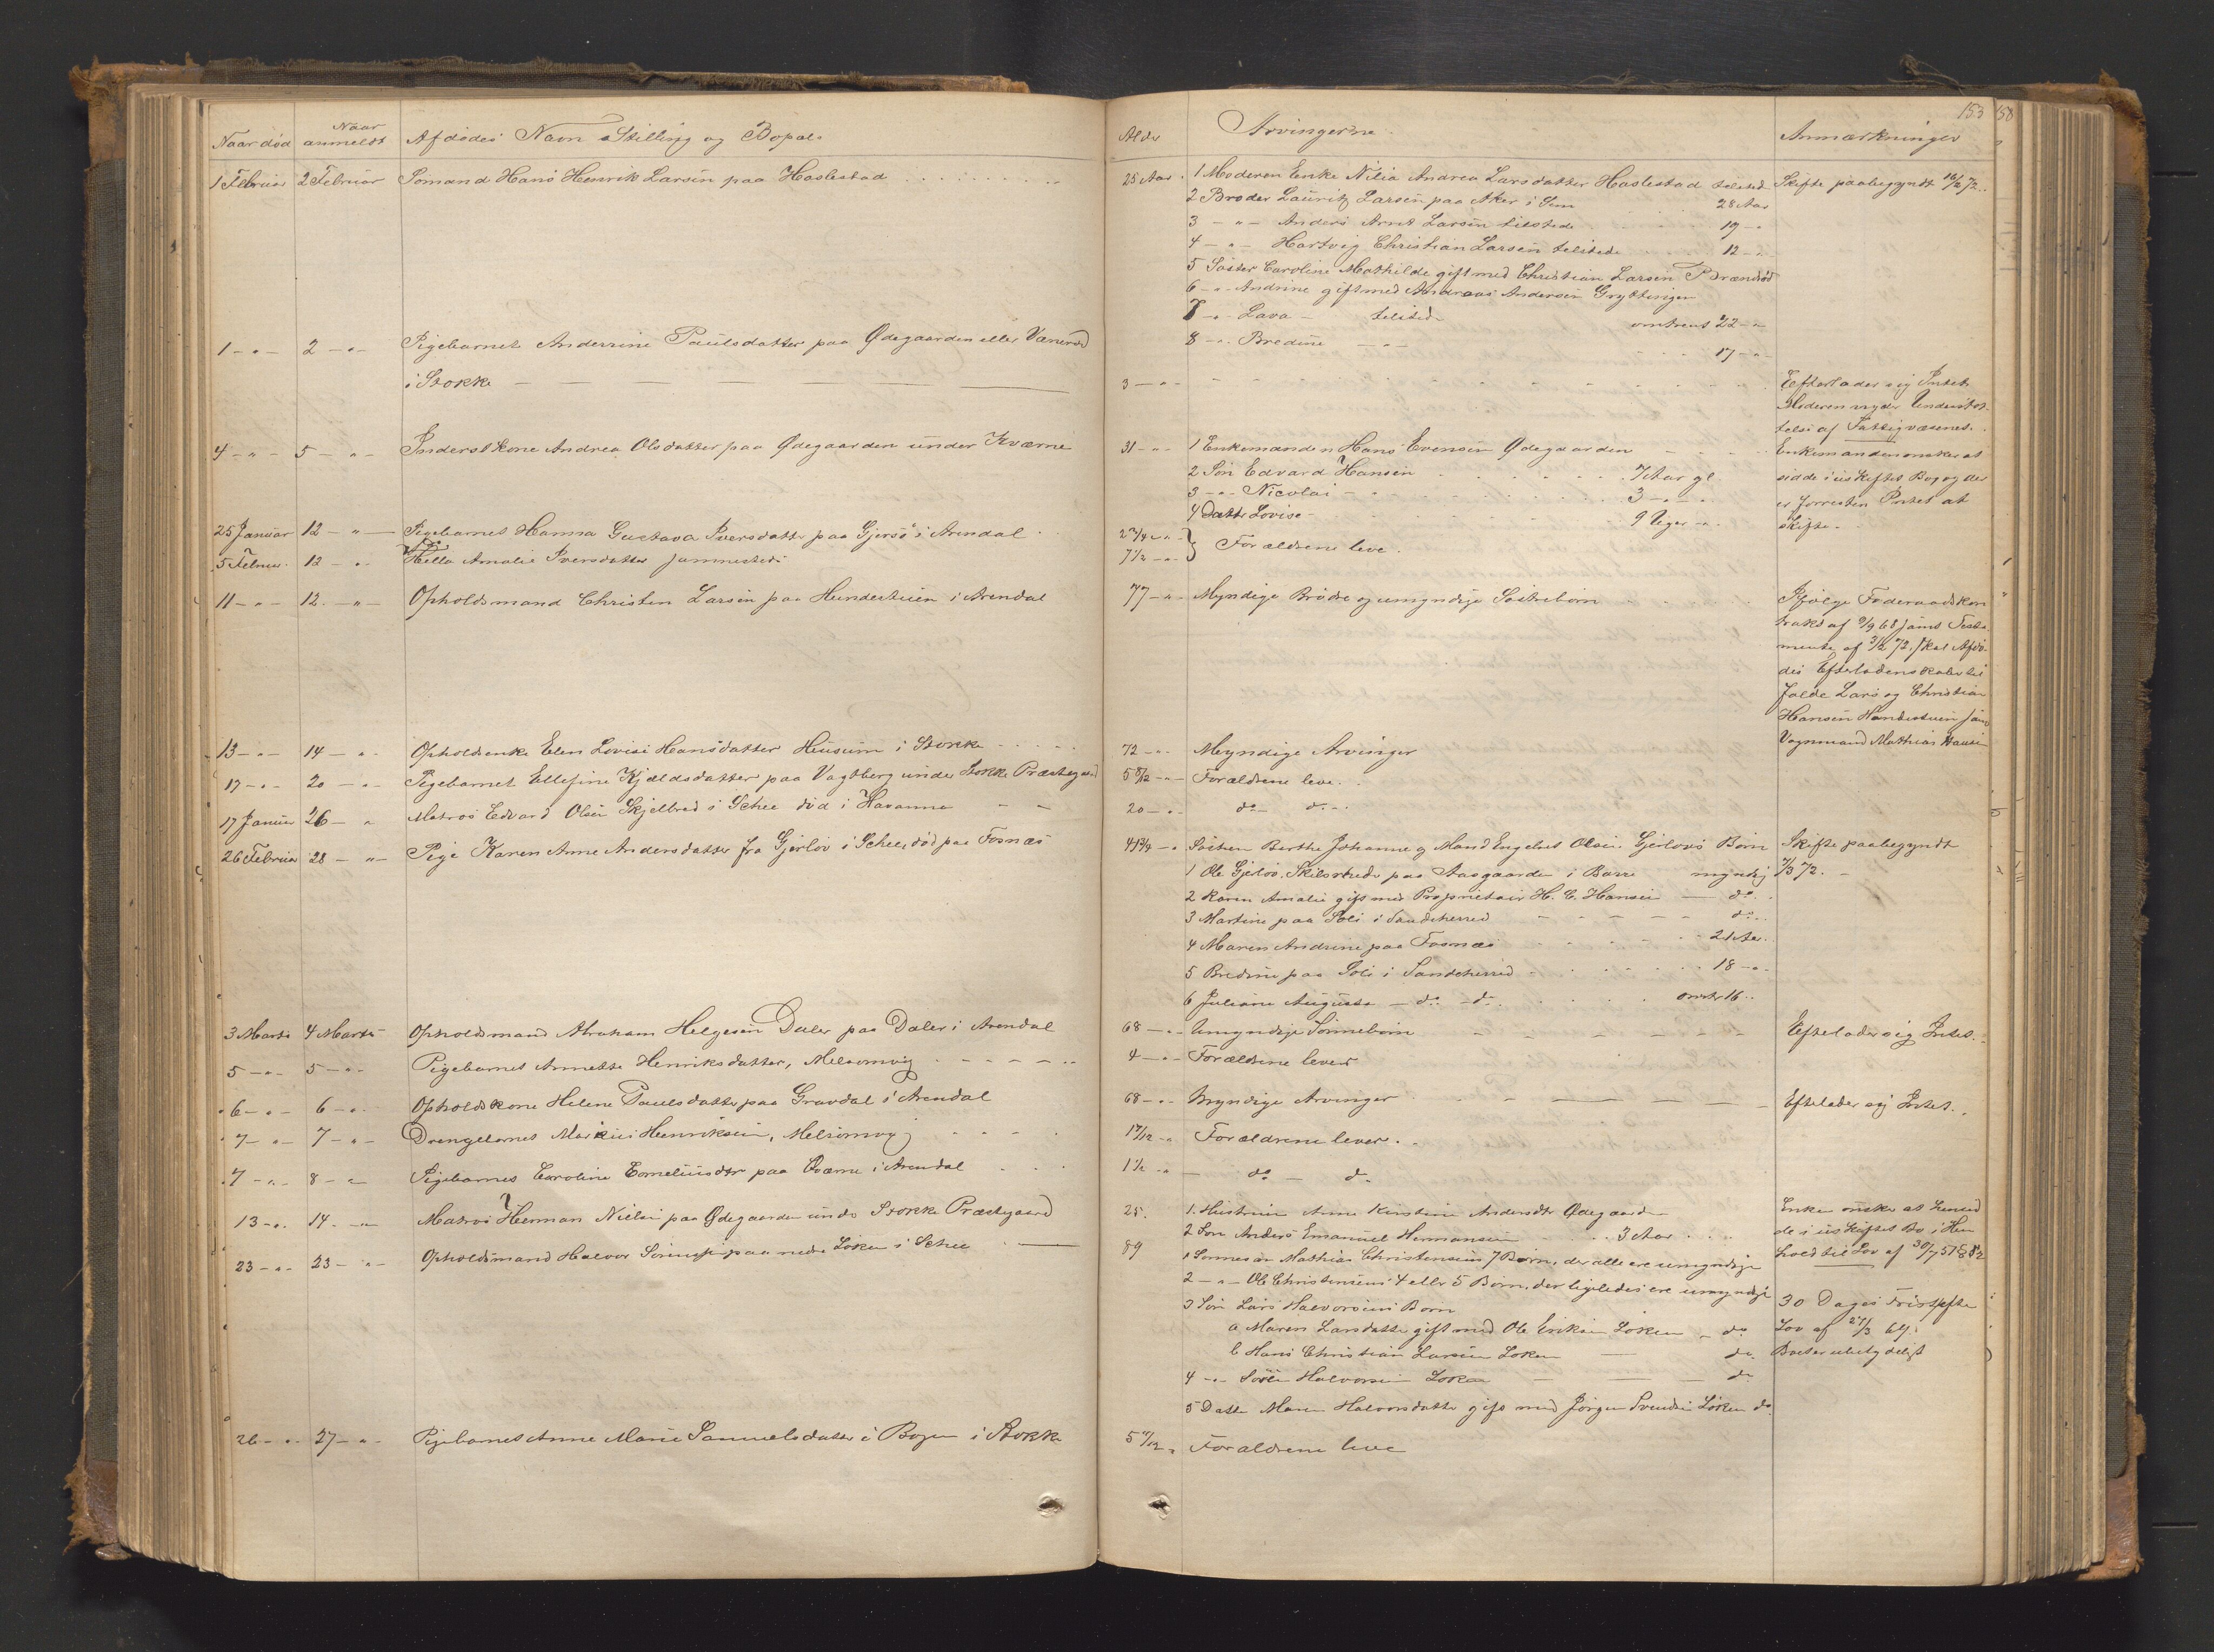 Naar død
Naar anmeldt
Afdødes Navn Stilling og Bopæl
1 Februar 2 Februar Sømand Hans Henrik Larsen paa Haslestad
1 - " - 2 - " - Pigebarnet Anderine Paulsdatter paa Ødegaarden eller Vænerød
i Stokke
4 - " - 5 - " - Inderst Kone Andrea Olsdatter paa Ødegaarden under Kværne
25 Januar 12 - " - Pigebarnet Hanna Gustava Iversdatter paa Gjersø i Arendal
5 Februar 12 - " - Amalie Iversdatter sammesteds
11 - " - 12 - " - Opholdsmand Christen Larsen paa Hundestuen i Arendal
13 - " - 14 - " - Opholdsenke Elen Lovise Hansdatter Husum i Stokke
17 - " - 20 - " - Pigebarnet Ellefine Kjældsdatter paa Vagtberg under Stokke Præstegaard
17 Januar 26 - " Matros Edvard Olsen Skjelbred i Schee død i Havanna
26 Februar 28 - " - Pige Karen Anne Andersdatter fra Gjerløv i Schee, død paa Fosnæs
3 Marts 4 Marts Opholdsmand Abraham Helgesen Daler paa Daler i Arendal
5 - " - 5 - " - Pigebarnet Annette Henriksdatter, Melsomvig
6 - " - 6 - " - Opholdskone Helene Paulsdatter paa Gravdal i Arendal
7 - " - 7 - " - Drengebarnet Marius Henriksen, Melsomvig
7 - " - 8 - " Pigebarnet Caroline Corneliusdtr paa Qværne i Arendal
13 - " - 14 - " - Matros Herman Nielsen paa Ødegaarden under Stokke Præstegaard
23 - " - 23 - " - Opholdsmand Halvor Sørensen paa nedre Løken i Schee
26 - " - 27 - " - Pigebarnet Anne Marie Samuelsdatter i Bogen i Stokke
153
158
Alder
Arvingerne
Anmærkninger
25 Aar 1 Moderen Enke Nilia Andrea Larsdatter Haslestad tilstede Skifte paabegyndt 16/2 72.
2 Broder Lauritz Larsen paa Aker i Sem 28 Aar
3 - " - Anders Arnt Larsen tilstede 19 - "
4 - " - Hartvig Christian Larsen tilstede 12 - "
5 Søster Caroline Mathilde gift med Christian Larsen Brændsrød
6 - " - Andrine gift med Andreas Andersen Gryttingen
7 - " - Lava - tilstede omtrent 22 - "
8 - " - Bredine - " - 17 - " -
3 - " - Efterlader sig Intet
Moderen nyder Understøt-
telse af Fattigvæsenet.
31 - " - 1 Enkemanden Hans Evensen Ødegaarden Enkemanden ønsker at
2 Søn Edvard Hansen 7 Aar gl sidde i uskiftet Bo, og der
3 - " - Nicolai - 3 - " - er forresten Intet at
4 Datter Lovise - 9 Uger - " skifte.
2 3/4 - " -
7 1/2 - " - } Forældrene leve.
77 - " - Myndige Brødre og umyndige Søstrebørn Ifølge Føderaadskon
trakt af 9/9 68 samt Testa
mente af 3/2 72, skal Afdø-
des Efterladenskaber til
falde Lars og Christian
Hansen Hundestuen samt
Vognmand Mathias Hansen
72 - " - Myndige Arvinger
5 8/12 - " - Forældrene leve.
20 - " - do - do -
41 3/4 - " Søsteren Berthe Johanne og Mand Engebret Olsen Gjerløvs Børn Skifte paabegyndt
1 Ole Gjerløv, Skibsrheder paa Aasgaarden i Borre myndig 7/3 72.
2 Karen Amalie gift med Proprietair H. C. Hansen - do.
3 Martine paa Soli i Sandeherred do.
4 Maren Andrine paa Fosnæs 21 Aar.
5 Bredine paa Soli i Sandeherred 18 - " -
6 Juliane Augusta - do - do. omtr 16..
68 - " - Umyndige Sønnebørn Efterlader sig Intet.
4 - " - Forældrene lever
68 - " - Myndige Arvinger Efterlader sig Intet.
1 7/12 - " Forældrene lever.
1 1/2 - " do - do
25. 1. Hustruen Anne Kirstine Andersdtr Ødegaarden Enken ønsker at hensid
2 Søn Anders Emanuel Hermansen 3 Aar de i uskiftet Bo i Hen
89 1 Sønnesøn Mathias Christensens 7 Børn, der alle ere umyndige hold til Lov af 30/7 51 § 8 & 12
2 - " - Ole Christensens 4 eller 5 Børn, der ligeledes ere umyndige
3 Søn Lars Halvorsens Børn 30 Dages Frist efter
a Maren Larsdatter gift med Ole Eriksen Løken - do Lov af 27/3 69.
b Hans Christian Larsen Løken - do. Boet er ubetydeligt
4 - " - Søren Halvorsen Løken - do
5 Datter Maren Halvorsdatter gift med Jørgen Svendsen Løken do.
5 11/12 " Forældrene leve